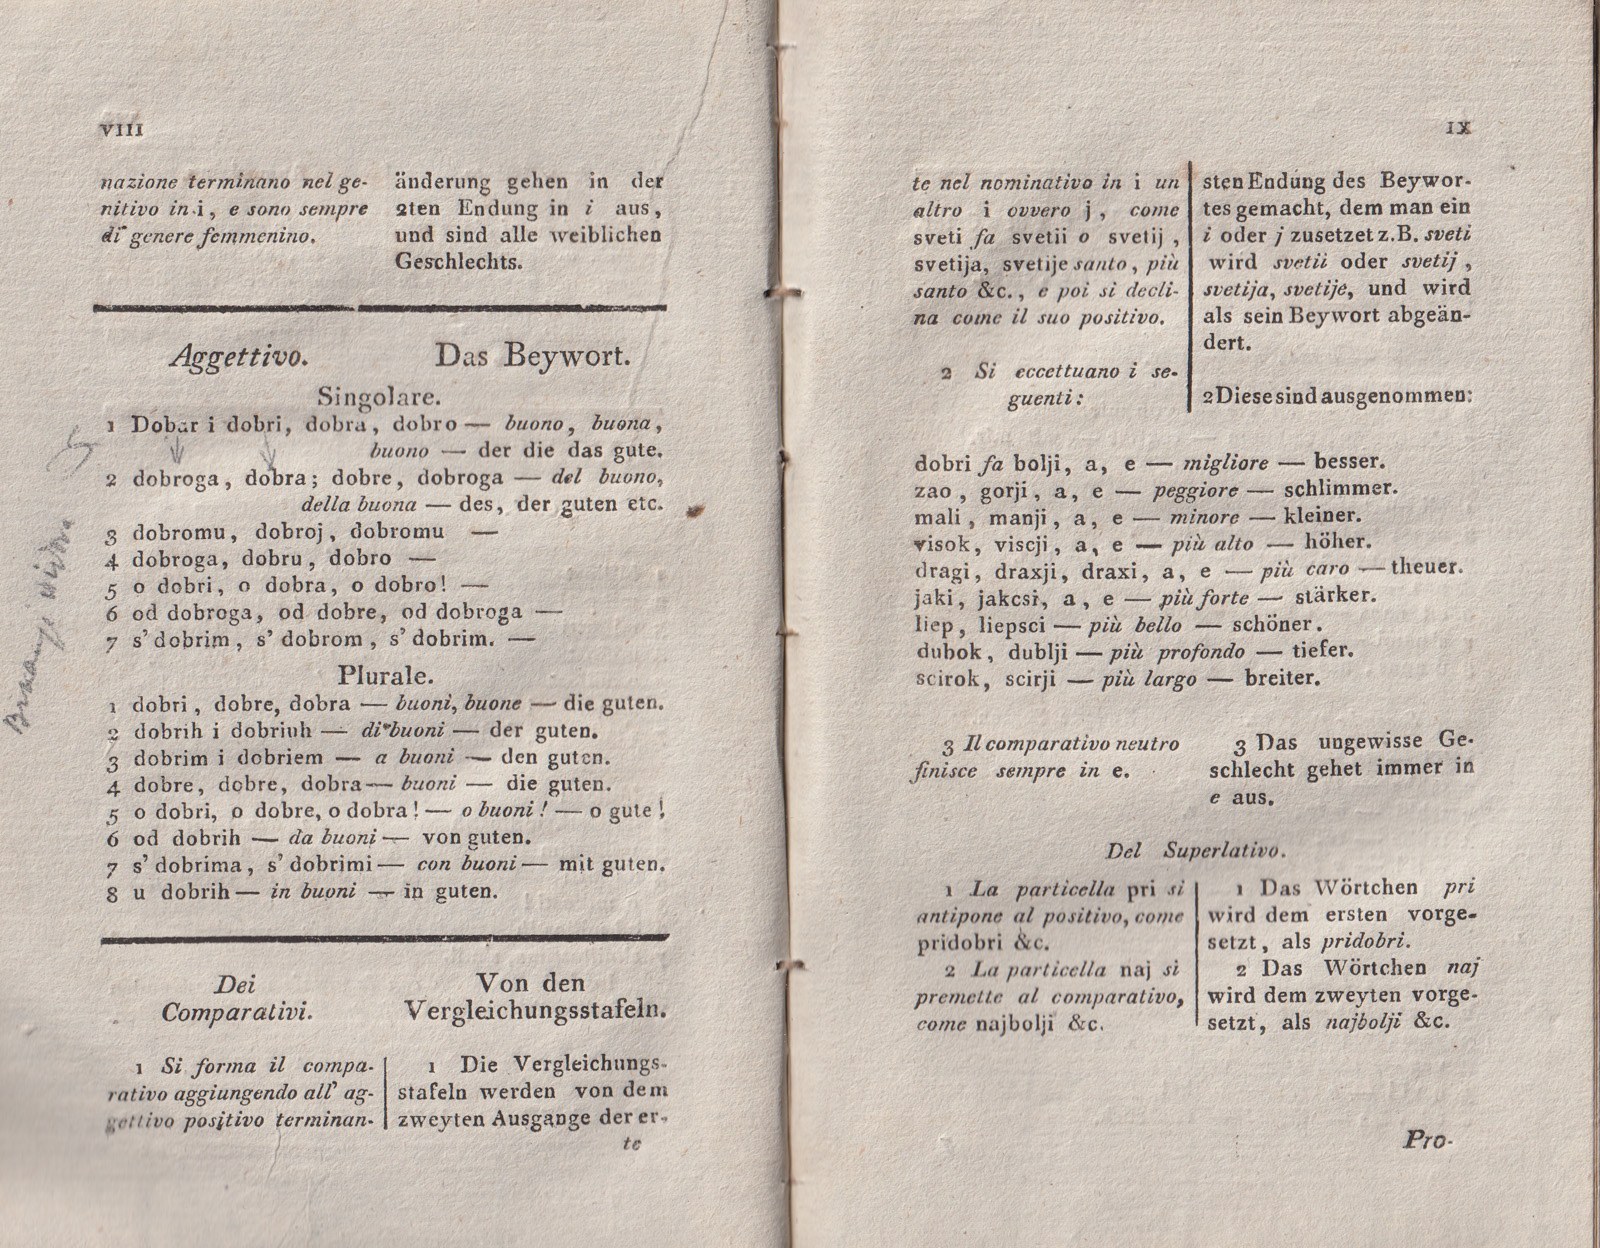 VIII
nazione terminano nel ge-
nitivo in i, e sono sempre
di genere femmenino.
änderung gehen in der
2ten Endung in i aus,
und sind alle weiblichen
Geschlechts.
Aggettivo.
Das Beywort.
Singolare.
1 Dobar i dobri, dobra, dobro — buono, buona,
buono — der die das gute.
2 dobroga, dobra; dobre, dobroga — del buono,
della buona — des, der guten etc.
3 dobromu, dobroj, dobromu —
4 dobroga, dobru, dobro —
5 o dobri, o dobra, o dobro! —
6 od dobroga, od dobre, od dobroga —
7 s' dobrim, s' dobrom, s' dobrim. —
Plurale.
1 dobri, dobre, dobra — buoni, buone — die guten.
2 dobrih i dobriuh — di buoni — der guten.
3 dobrim i dobriem — a buoni — den guten.
4 dobre, dobre, dobra — buoni — die guten.
5 o dobri, o dobre, o dobra! — o buoni! — o gute!
6 od dobrih — da buoni — von guten.
7 s' dobrima, s' dobrimi — con buoni — mit guten.
8 u dobrih — in buoni — in guten.
Dei
Comparativi.
Von den
Vergleichungsstafeln.
1 Si forma il compa-
rativo aggiungendo all' ag-
gettivo positivo terminan-
1 Die Vergleichungs-
stafeln werden von dem
zweyten Ausgange der er-
te
IX
te nel nominativo in i un
altro i ovvero j, come
sveti fa svetii o svetij,
svetija, svetije santo, più
santo &c., e poi si decli-
na come il suo positivo.
2 Si eccettuano i se-
guenti:
sten Endung des Beywor-
tes gemacht, dem man ein
i oder j zusetzet z.B. sveti
wird svetii oder svetij,
svetija, svetije, und wird
als sein Beywort abgeän-
dert.
2 Diese sind ausgenommen:
dobri fa bolji, a, e — migliore — besser.
zao, gorji, a, e — peggiore — schlimmer.
mali, manji, a, e — minore — kleiner.
visok, viscji, a, e — più alto — höher.
dragi, draxji, draxi, a, e — più caro — theuer.
jaki, jakcsi, a, e — più forte — stärker.
liep, liepsci — più bello — schöner.
dubok, dublji — più profondo — tiefer.
scirok, scirji — più largo — breiter.
3 Il comparativo neutro
finisce sempre in e.
3 Das ungewisse Ge-
schlecht gehet immer in
e aus.
Del Superlativo.
1 La particella pri si
antipone al positivo, come
pridobri &c.
2 La particella naj si
premette al comparativo,
come najbolji &c.
1 Das Wörtchen pri
wird dem ersten vorge-
setzt, als pridobri.
2 Das Wörtchen naj
wird dem zweyten vorge-
setzt, als najbolji &c.
Pro-